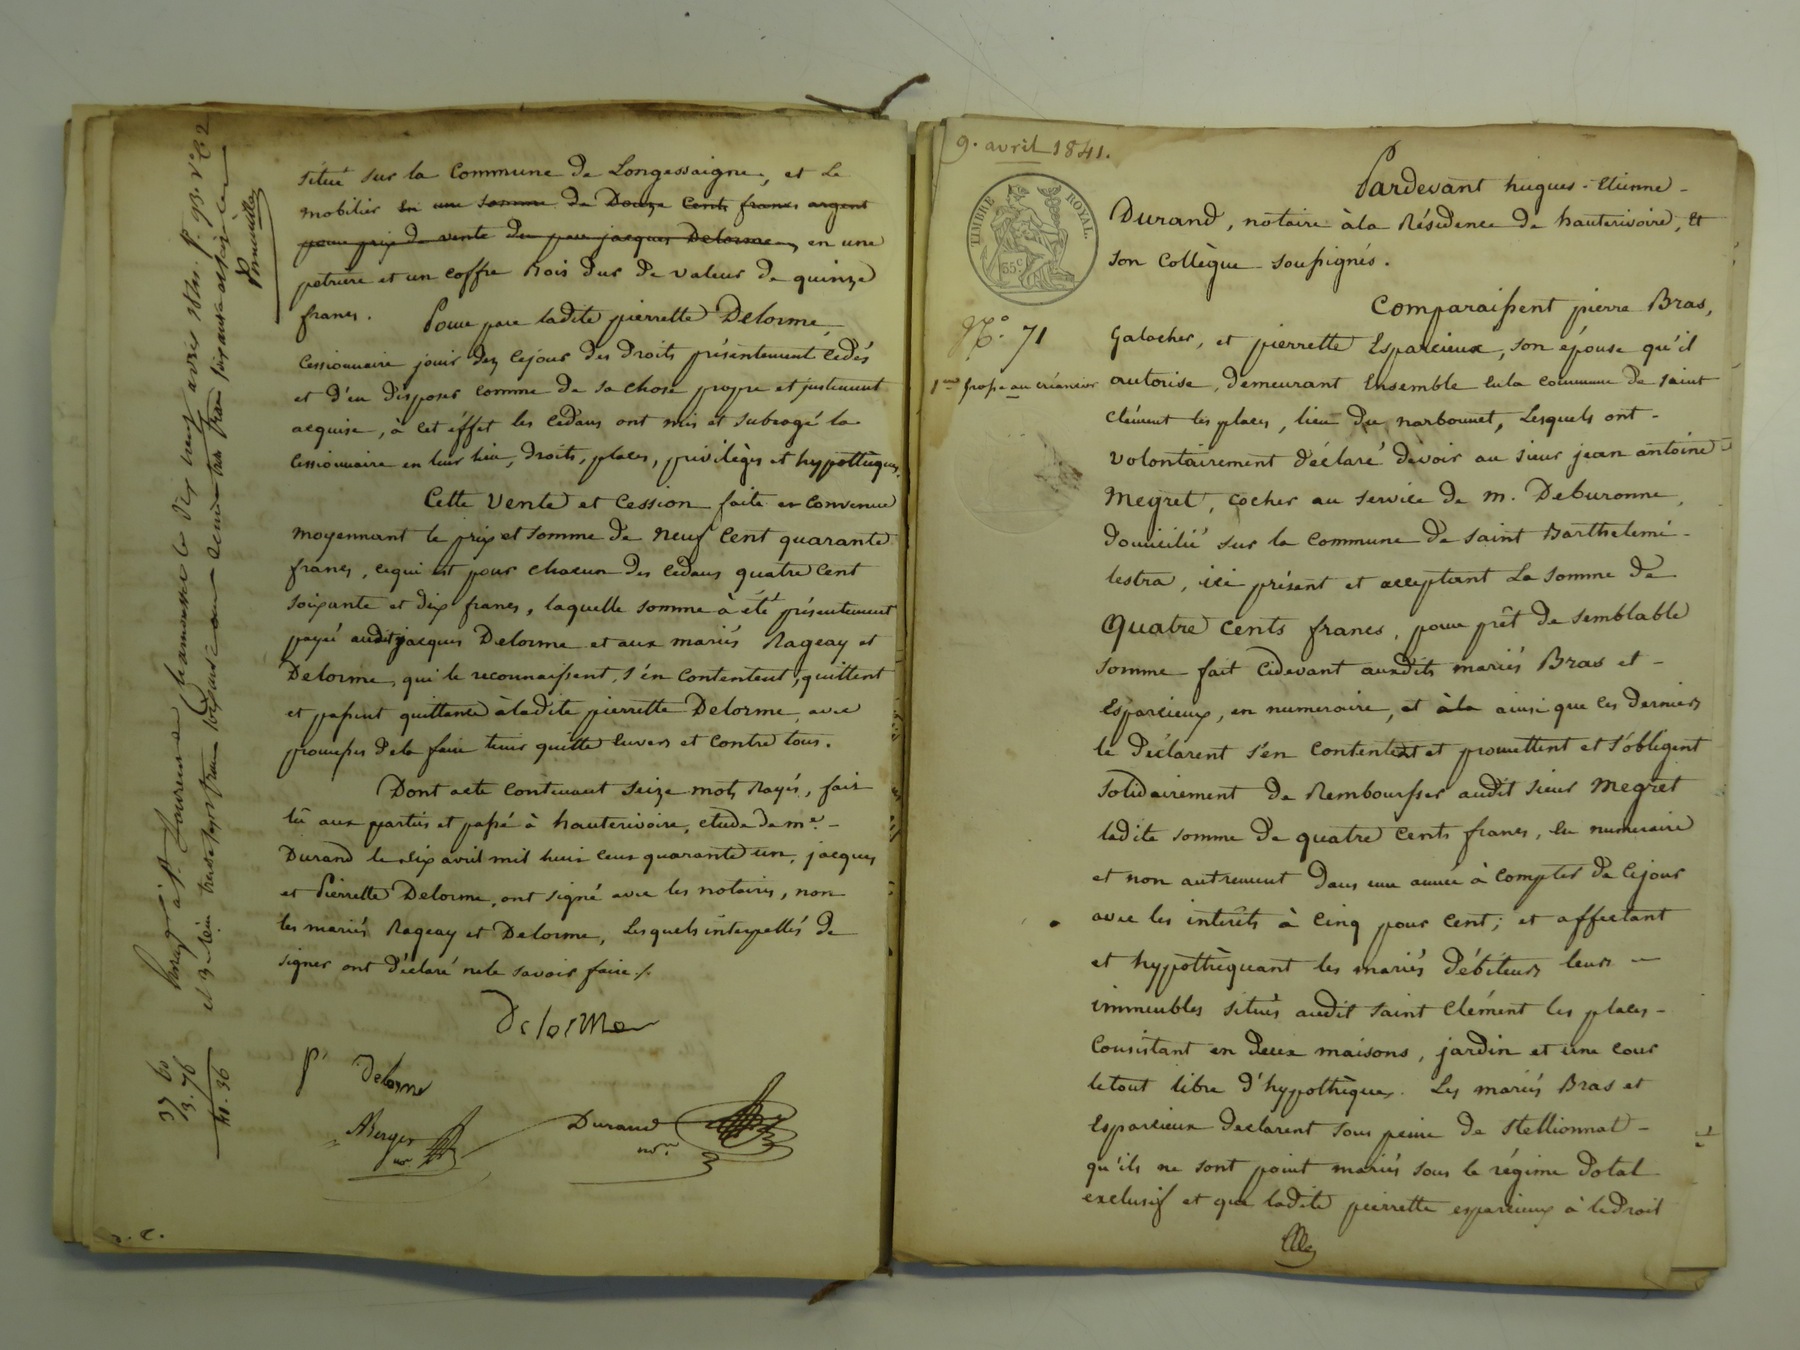 situé sur la Commune de Longessaigne, et le
mobilier en une somme de Douze Cents francs argent
pour prix de vente du père jacques Delorme, en une
petriere et un coffre Bois dur de valeur de quinze
francs.
Pour par ladite pierrette Delorme,
Cessionnaire jouir dez cejour des Droits présentement cedés
et d'en disposer comme de sa chose propre et justement
acquise, à cet éffet les Cédans ont mis et subrogé la
Cessionnaire en leur lieu, Droits, places, privilèges et hypothèques.
Cette Vente et Cession faite et Convenue
moyennant le prix et somme de neuf Cent quarante
francs, cequi est pour chacun des Cedans quatre Cent
soixante et dix francs, laquelle somme à été présentement
payée audit jacques Delorme et aux mariés Rageay et
Delorme, qui le reconnaissent, s'en contentent, quittent
et passent quittance àladite pierrette Delorme, avec
promesses dela faire tenir quitte Envers et Contre tous.
Dont acte Contenant seize mots Rayés, fait
lu aux parties et passé à hauterivoire, etude de me.
Durand le six avril mil huit cent quarante un, jacques
et Pierrette Delorme, ont signé avec les notaires, non
les mariés Rageay et Delorme, Lesquels interpellés de
signer ont déclaré nele savoir faire ./.
Delorme
p Delorme
Berger
nre
Durand
nore
37 60
3. 76
41. 36
9. avril 1841.
TIMBRE ROYAL.
35c
No. 71
1ere grosse au créancier
Pardevant hugues-Etienne
Durand, notaire àla Résidence de hauterivoire, Et
son Collègue soussignés.
Comparaissent pierre Bras,
Galocher, et pierrette Esparcieux, son épouse qu'il
autorise, demeurant Ensemble Enla commune de saint
clément les places, lieu du narbonnet, Lesquels ont
volontairement déclaré devoir au sieur jean antoine
Megret, cocher au service de m. Deburonne,
domicilié sur la Commune de saint Barthelemi
lestra, ici présent et acceptant La somme de
Quatre Cents francs, pour prêt de semblable
somme fait Cidevant auxdits mariés Bras et
Esparcieux, en numeraire, et à la ainsi que ces derniers
le déclarent s'en contentent et promettent et s'obligent
solidairement de Rembourser audit sieur Megret
ladite somme de quatre Cents francs, En numeraire
et non autrement Dans une année à Compter de Cejour
avec les intérêts à Cinq pour cent; et affectant
et hypothèquant les mariés débiteurs leurs
immeubles situés audit saint Clément les places
Consistant en deux maisons, jardin et une cour
letout libre d'hypothèques. Les mariés Bras et
Esparcieux declarent sous peine de Stellionnat
qu'ils ne sont point mariés sous le régime Dotal
exclusif et que ladite pierrette esparcieux à le Droit